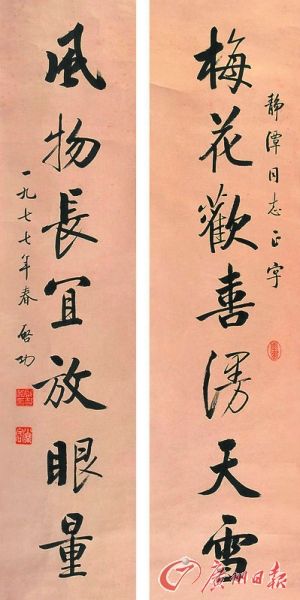 静潭同志正字
梅花歡喜漫天雪
風物長宜放眼量
一九七七年春 啓功
廣州日报